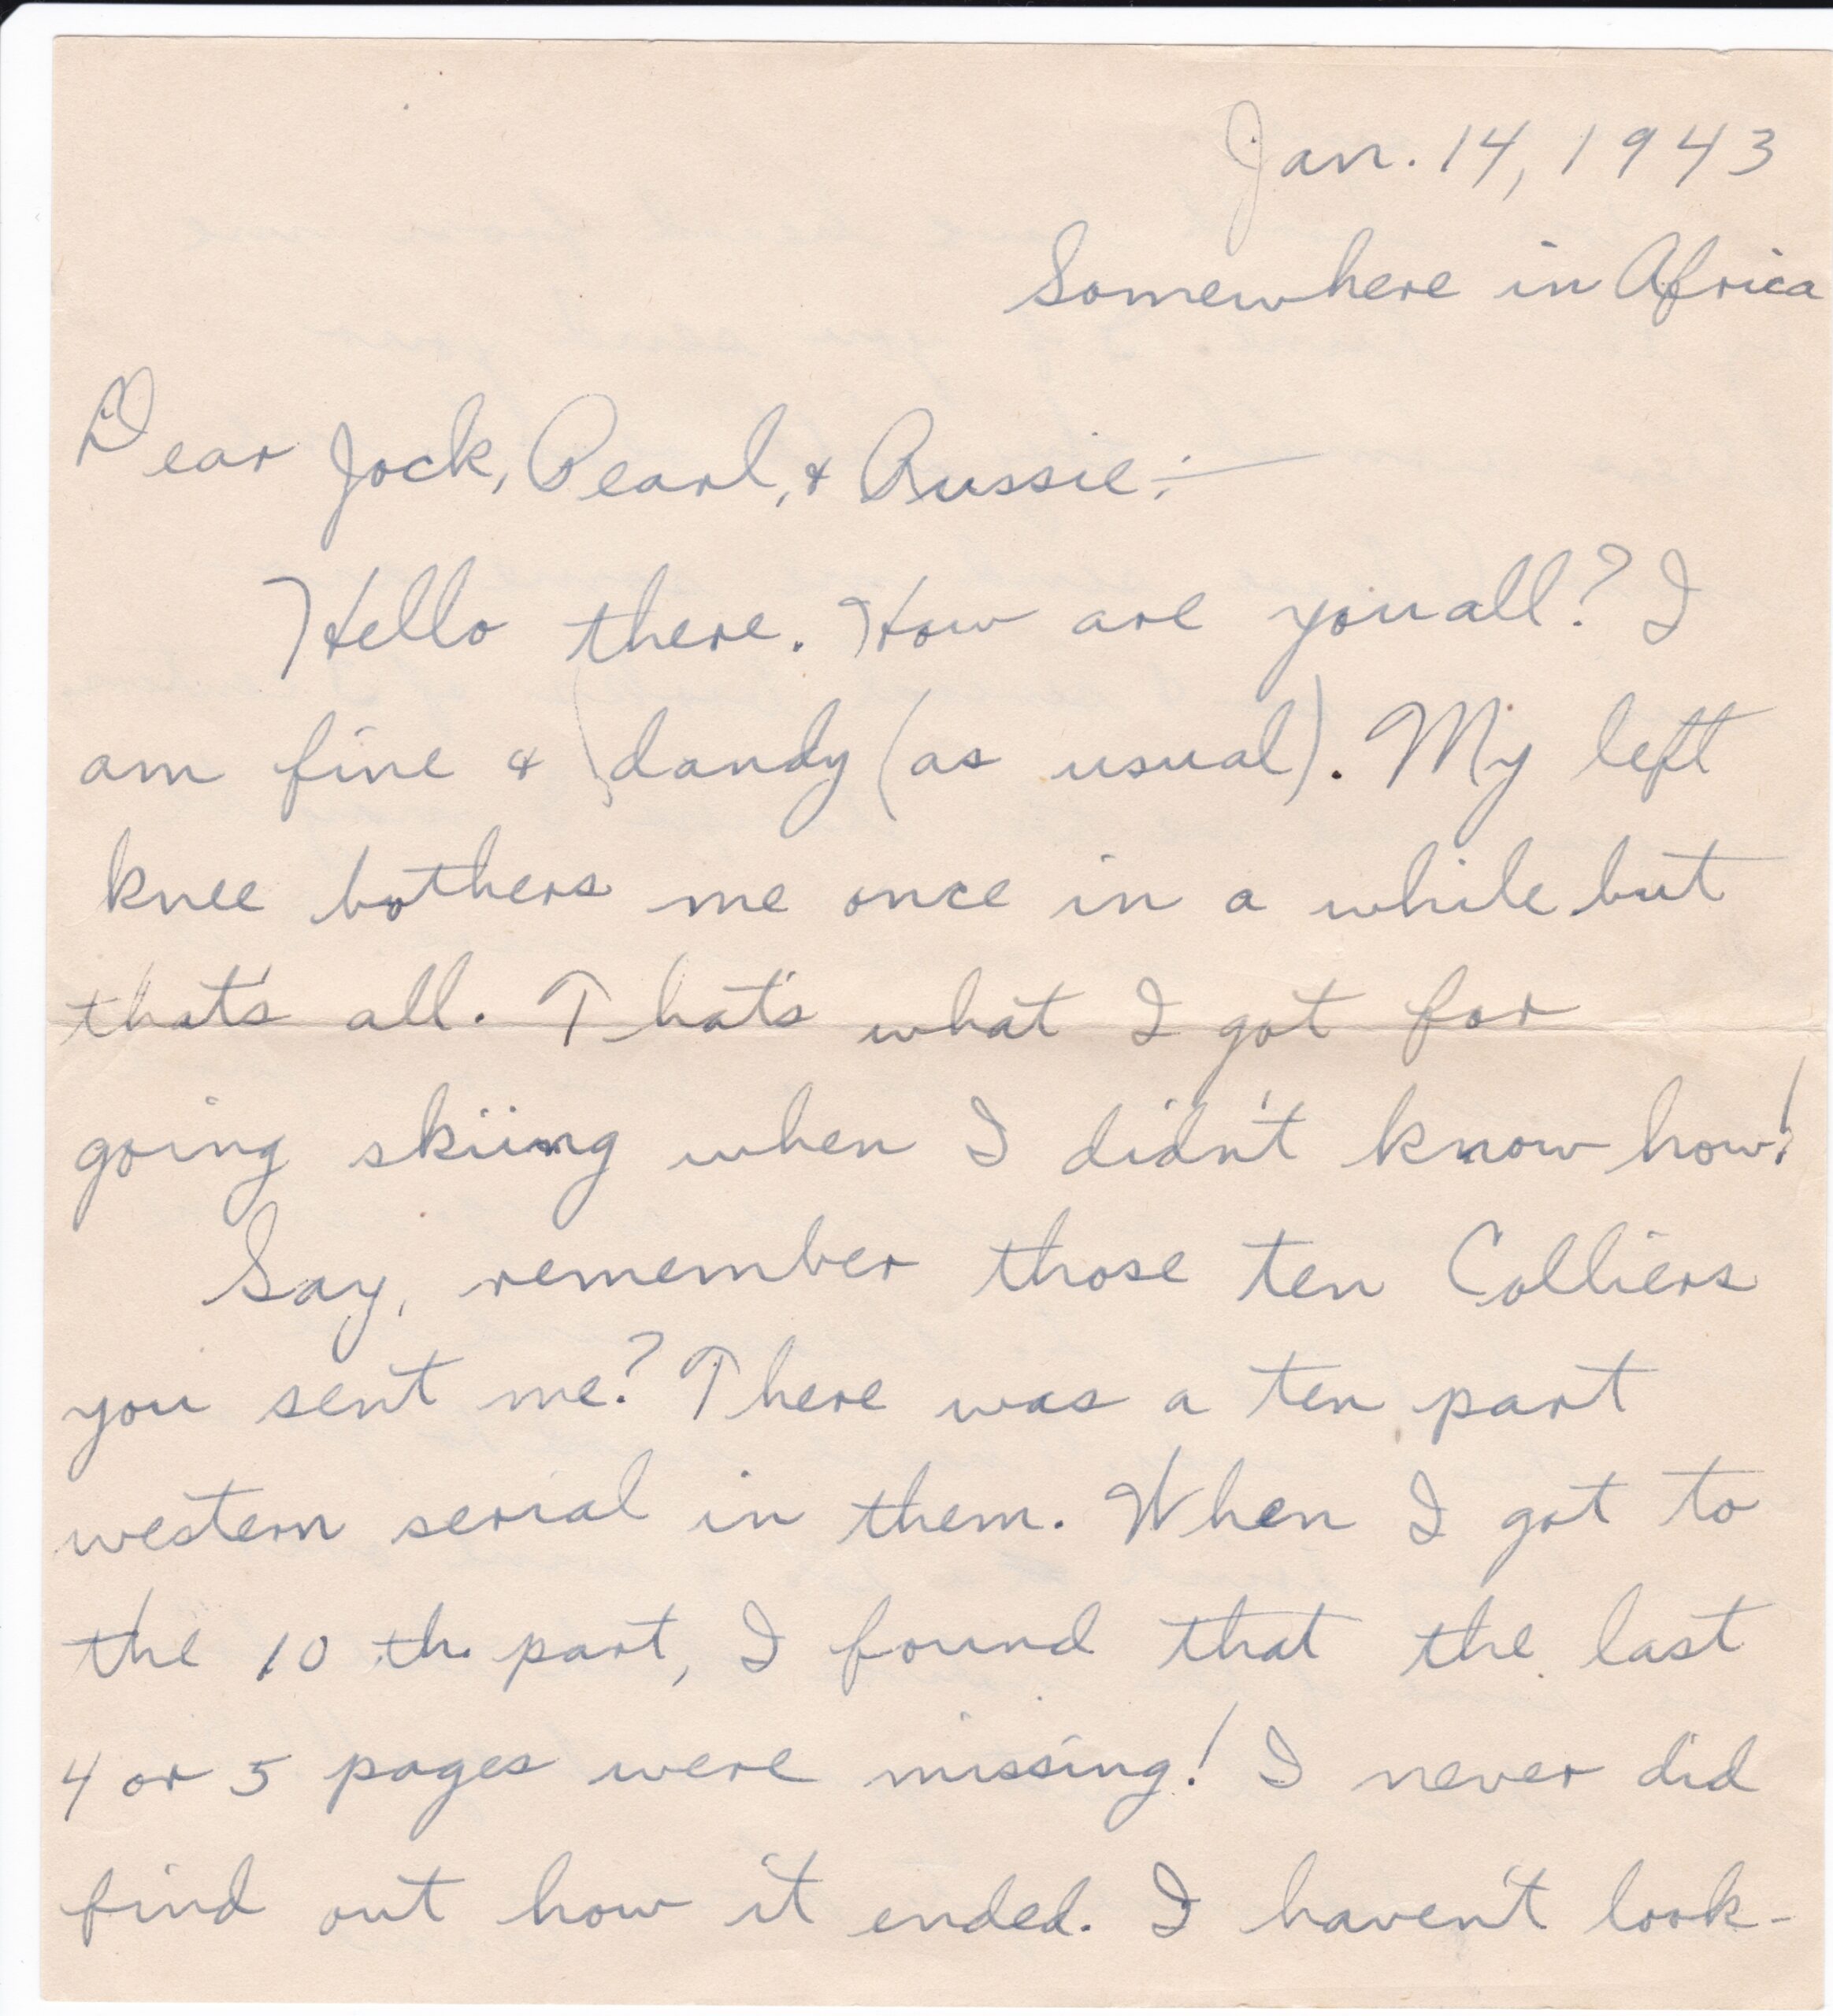 Jan. 14, 1943
Somewhere in Africa
Dear Jock, Pearl, & Aussie:—
Hello there. How are you all? I
am fine & dandy (as usual). My left
knee bothers me once in a while but
that's all. That's what I got for
going skiing when I didn't know how!
Say, remember those ten Colliers
you sent me? There was a ten part
western serial in them. When I got to
the 10 th part, I found that the last
4 or 5 pages were missing! I never did
find out how it ended. I haven't look-